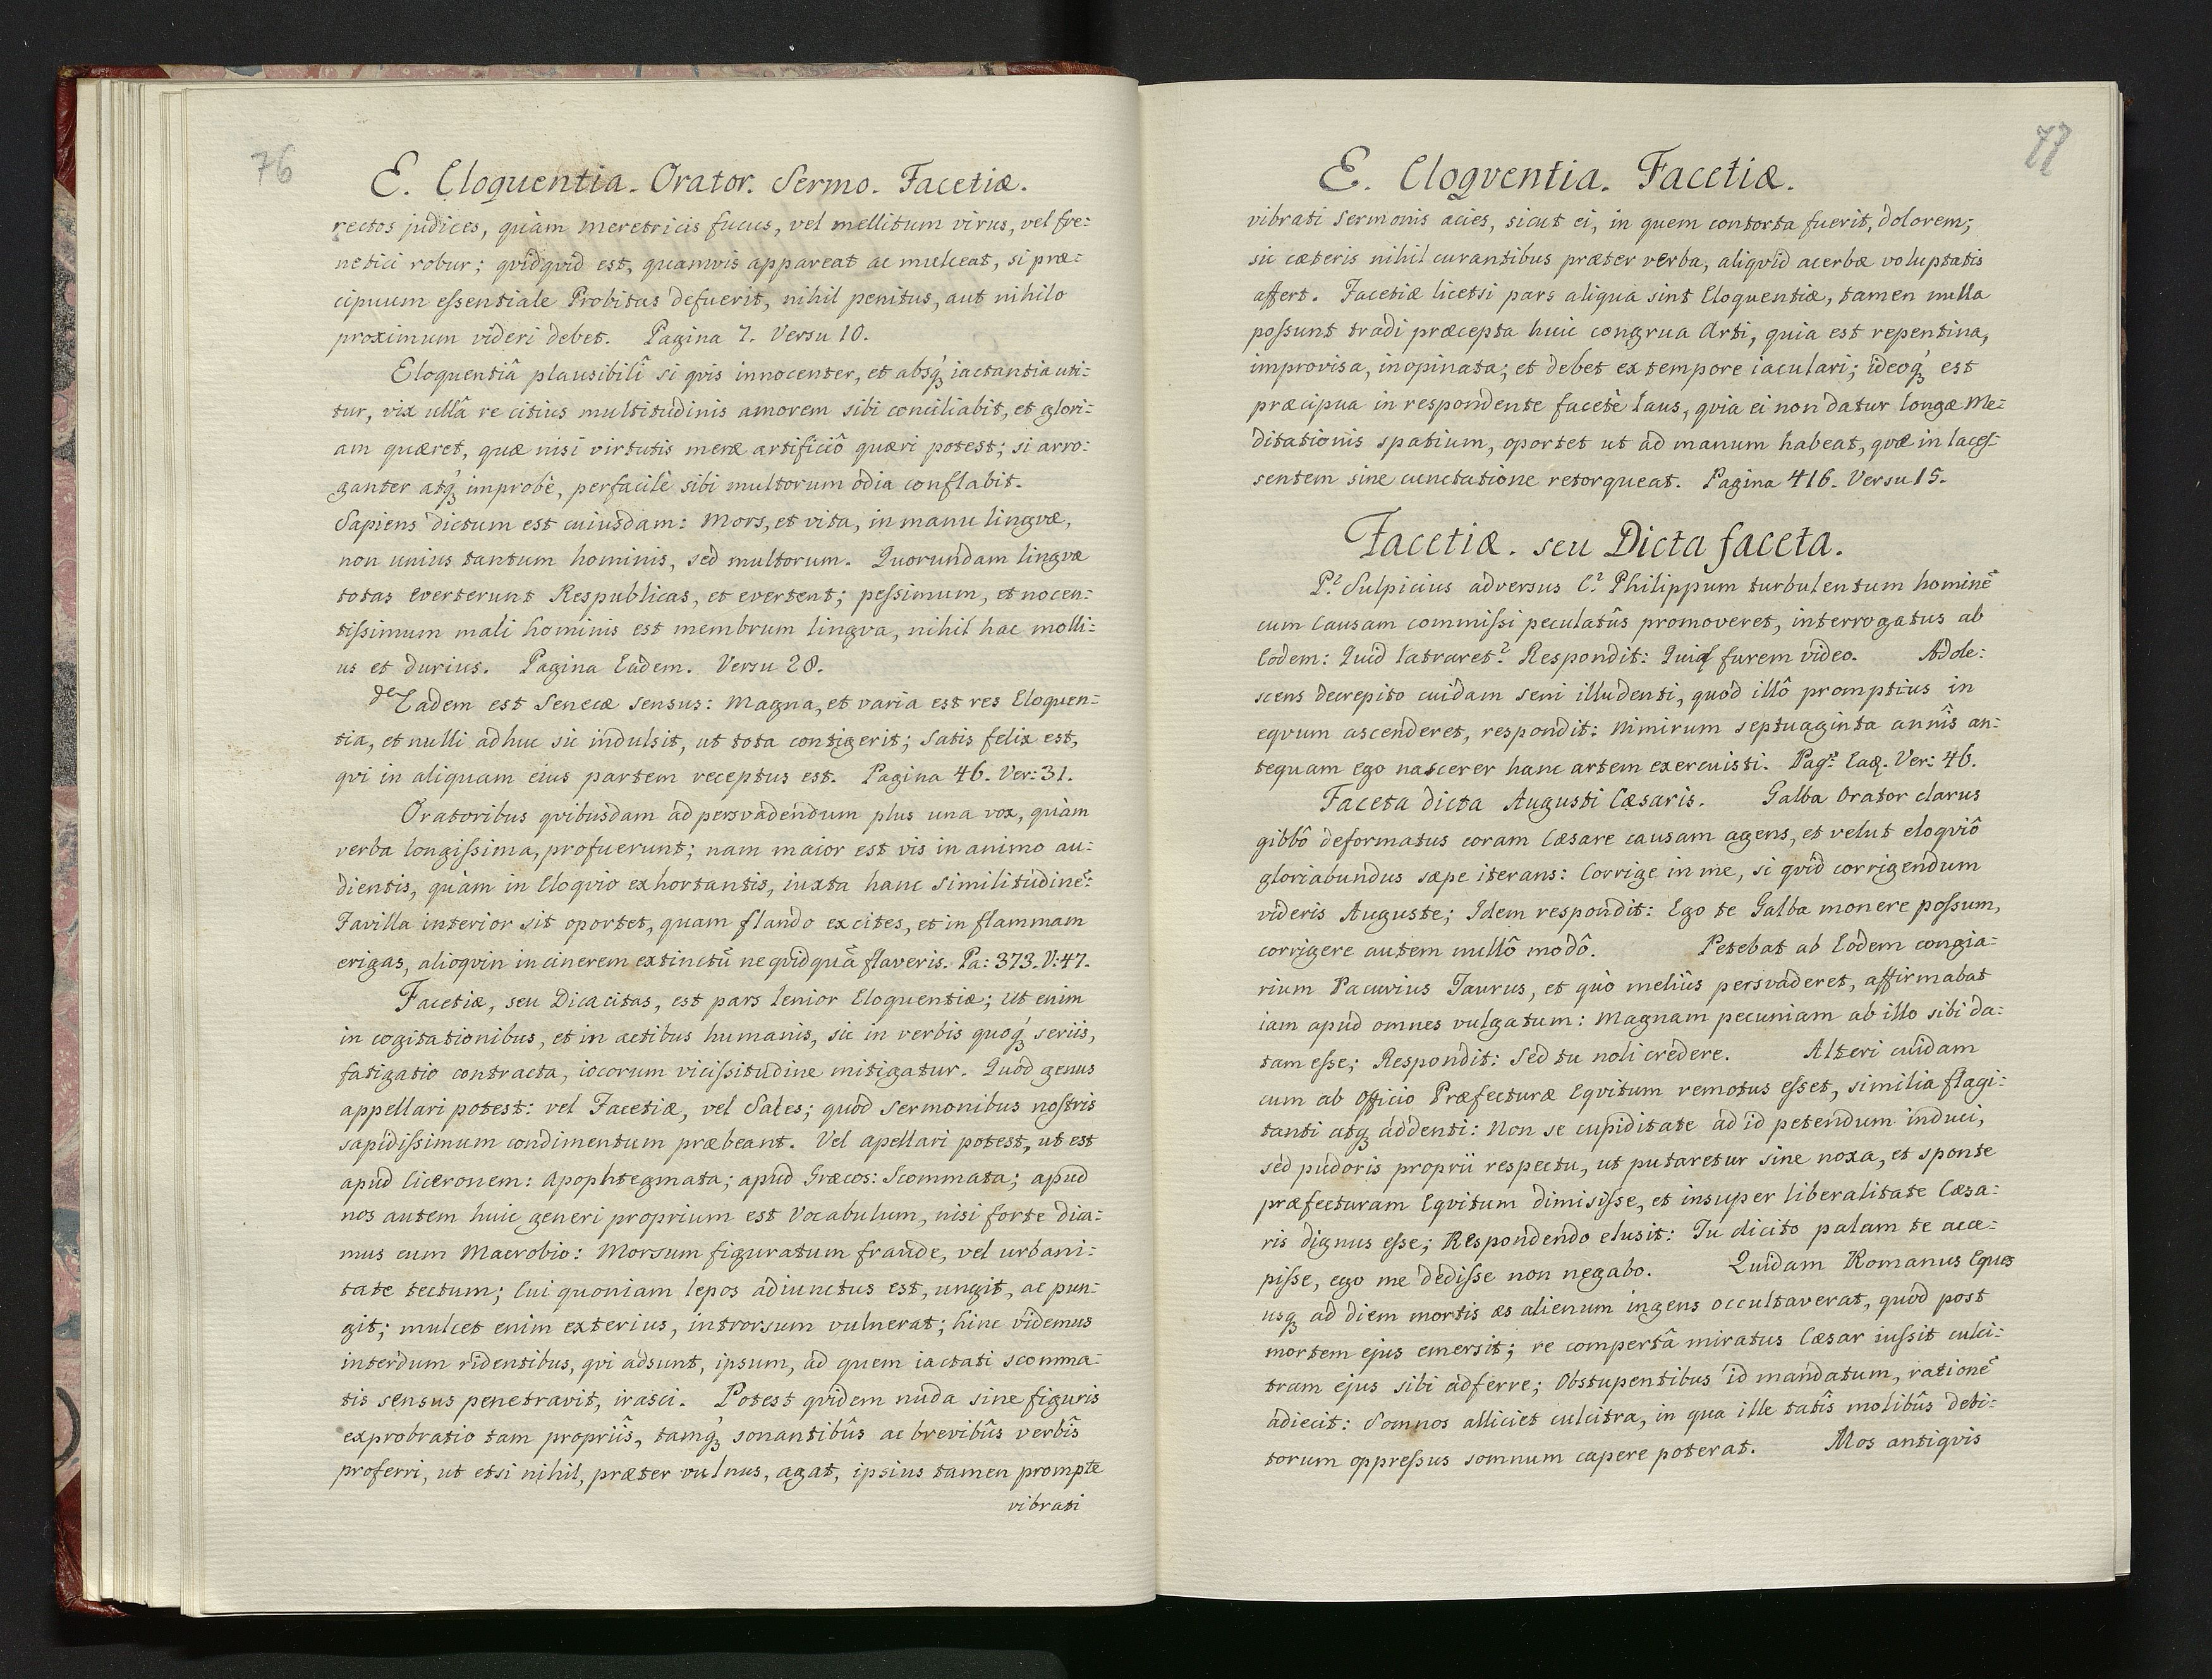 76
E. Eloquentia. Orator. Sermo. Facetiæ.
rectos judices, quàm meretricis fucus, vel mellitum virus, vel fre:
netici robur; qvidqvid est, quamvis appareat ac mulceat, si præ:
cipuum essentiale Probitas defuerit, nihil penitus, aut nihilo
proximum videri debet. Pagina 7. Versu 10.
Eloquentiâ plausibilî si qvis innocenter, et absq́ iactantia uti:
tur, vix ullâ re citius multitudinis amorem sibi conciliabit, et glori:
am quæret, quæ nisi virtutis meræ artificiô quæri potest; si arro:
ganter atq́ improbè, perfacilè sibi multorum odia conflabit.
Sapiens dictum est cuiusdam: Mors, et vita, in manu lingvæ,
non unius tantum hominis, sed multorum. Quorundam lingvæ
totas everterunt Respublicas, et evertent; pessimum, et nocen:
tissimum mali hominis est membrum lingva, nihil hac molli:
us et durius. Pagina Eadem. Versu 28.
de Eadem est Senecæ sensus: Magna, et varia est res Eloquen:
tia, et nulli adhuc sic indulsit, ut tota contigerit; Satis felix est,
qvi in aliquam eius partem receptus est. Pagina 46. Ver: 31.
Oratoribus qvibusdam ad persvadendum plus una vox, quàm
verba longissima, profuerunt; nam maior est vis in animo au:
dientis, quàm in Eloqvio exhortantis, iuxta hanc similitudinē:
Favilla interior sit oportet, quam flando excites, et in flammam
erigas, alioqvin in cinerem extinctū ne qvidquā flaveris. Pa: 373. V: 47.
Facetiæ, seu Dicacitas, est pars lenior Eloquentiæ; Ut enim
in cogitationibus, et in actibus humanis, sic in verbis quoq́ seriis,
fatigatio contracta, iocorum vicissitudine mitigatur. Quod genus
appellari potest: vel Facetiæ, vel Sales; quòd sermonibus nostris
sapidissimum condimentum præbeant. Vel apellari potest, ut est
apud Ciceronem: Apophtegmata; apud Græcos: Scommata; apud
nos autem huic generi proprium est Vocabulum, nisi forte dica:
mus cum Macrobio: Morsum figuratum fraude, vel urbani:
tate tectum; Cui quoniam lepos adiunctus est, ungit, ac pun:
git; mulcet enim exterius, introrsum vulnerat; hinc videmus
interdum ridentibus, qvi adsunt, ipsum, ad quem iactati scomma:
tis sensus penetravit, irasci. Potest qvidem nuda sine figuris
exprobratio tam propriîs, tamq́ sonantibûs ac brevibûs verbîs
proferri, ut etsi nihil, præter vulnus, agat, ipsius tamen prompte
vibrati
77
E. Eloqventia. Facetiæ.
vibrati sermonis acies, sicut ei, in quem contorta fuerit, dolorem;
sic cæteris nihil curantibus præter verba, aliqvid acerbæ voluptatis
affert. Facetiæ licetsi pars aliqua sint Eloquentiæ, tamen nulla
possunt tradi præcepta huic congrua Arti, quia est repentina,
improvisa, inopinata; et debet ex tempore iaculari; ideoq́ est
præcipua in respondente facetè laus, qvia ei non datur longæ Me:
ditationis spatium, oportet ut ad manum habeat, qvæ in laces:
sentem sine cunctatione retorqueat. Pagina 416. Versu 15.
Facetiæ. seu Dicta faceta.
P? Sulpicius adversus C? Philippum turbulentum hominē
cum Causam commissi peculatûs promoveret, interrogatus ab
Eodem: Quid latraret? Respondit: Quia furem video. Adole:
scens decrepito cuidam seni illudenti, quòd illô promptius in
eqvum ascenderet, respondit: Nimirum septuaginta annîs an:
tequam ego nascerer hanc artem exercuisti. Pag: Eaq. Ver: 46.
Faceta dicta Augusti Cæsaris. Galba Orator clarus
gibbô deformatus coram Cæsare causam agens, et velut eloqviô
gloriabundus sæpe iterans: Corrige in me, si qvid corrigendum
videris Auguste; Idem respondit: Ego te Galba monere possum,
corrigere autem nullô modô. Petebat ab Eodem congia:
rium Pacuvius Taurus, et quò meliùs persvaderet, affirmabat
iam apud omnes vulgatum: Magnam pecuniam ab illo sibi da:
tam esse; Respondit: Sed tu noli credere. Alteri cuidam
cum ab Officio Præfecturæ Eqvitum remotus esset, similia flagi:
tanti atq́ addenti: Non se cupiditate ad id petendum induci,
sed pudoris proprii respectu, ut putaretur sine noxa, et sponte
præfecturam Eqvitum dimisisse, et insuper liberalitate Cæsa:
ris dignus esse; Respondendo elusit: Tu dicito palam te acce:
pisse, ego me dedisse non negabo. Quidam Romanus Eques
usq́ ad diem mortis æs alienum ingens occultaverat, quod post
mortem ejus emersit; re compertâ miratus Cæsar iussit culci:
tram ejus sibi adferre; Obstupentibus id mandatum, rationē
adiecit: Somnos alliciet culcitra, in qua ille tatîs molibûs debi:
torum oppressus somnum capere poterat. Mos antiqvis